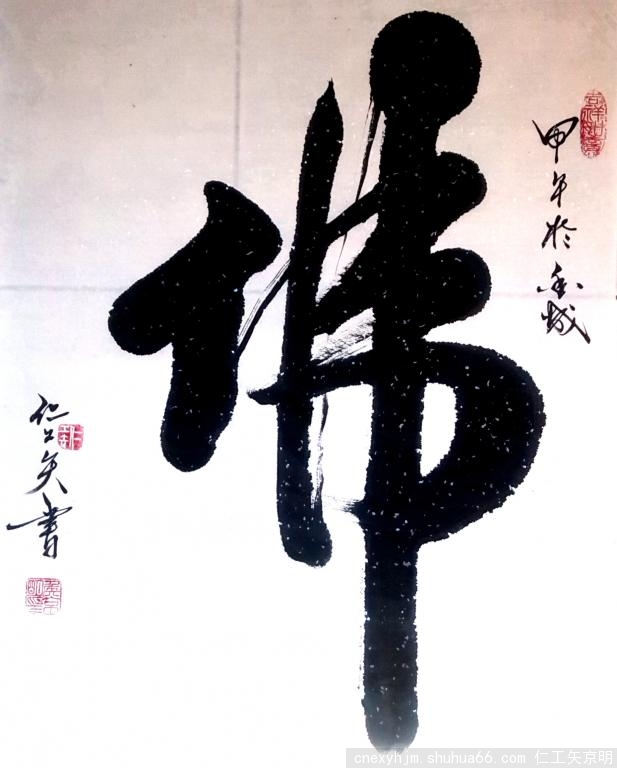 佛
甲午於城
吉祥如意
仁工矢書
cnexyhjm.shuhua66.com 仁工矢京明